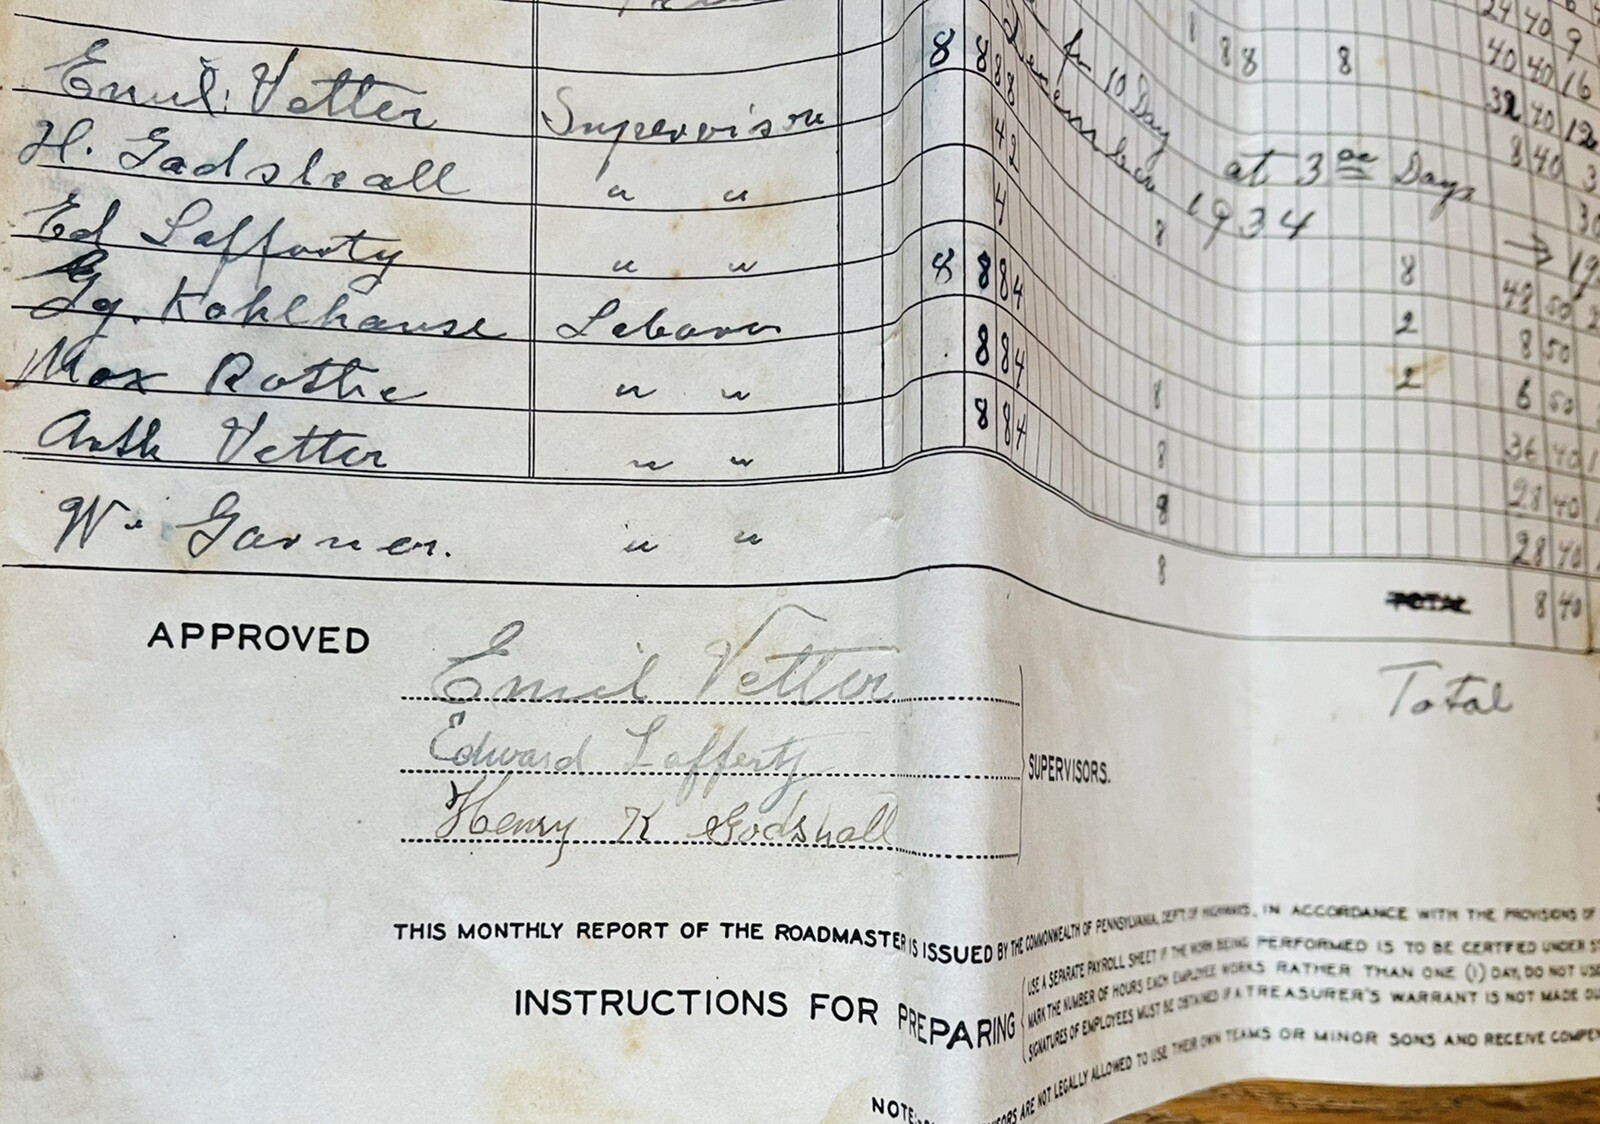 Emil Vetter Supervison 8 8 8 8 8 8 8 40 40 16
for 10 Day at 3 00 Days
December 1934
H. Gadshall " " 4 2 8 40 3
Ed Lafferty " " 4 8
Gg. Kohlhause Lebaror 8 8 8 4 8 48 50
Max Rothe " " 8 8 4 8 2 8 50
Arth Vetter " " 8 8 4 8 2 6 50
W. Garner. " " 8 8 36 40
28 40
28 40
TOTAL 8 40
APPROVED
Emil Vetter
Edward Lafferty
Henry K Godshall
SUPERVISORS.
Total
THIS MONTHLY REPORT OF THE ROADMASTER IS ISSUED BY THE COMMONWEALTH OF PENNSYLVANIA, DEPT. OF HIGHWAYS, IN ACCORDANCE WITH THE PROVISIONS OF
INSTRUCTIONS FOR PREPARING
USE A SEPARATE PAYROLL SHEET IF THE WORK BEING PERFORMED IS TO BE CERTIFED UNDER
MARK THE NUMBER OF HOURS EACH EMPLOYEE WORKS RATHER THAN ONE (1) DAY, DO NOT USE
SIGNATURES OF EMPLOYEES MUST BE OBTAINED IF A TREASURER'S WARRANT IS NOT MADE
NOTE: ARE NOT LEGALLY ALLOWED TO USE THEIR OWN TEAMS OR MINOR SONS AND RECEIVE